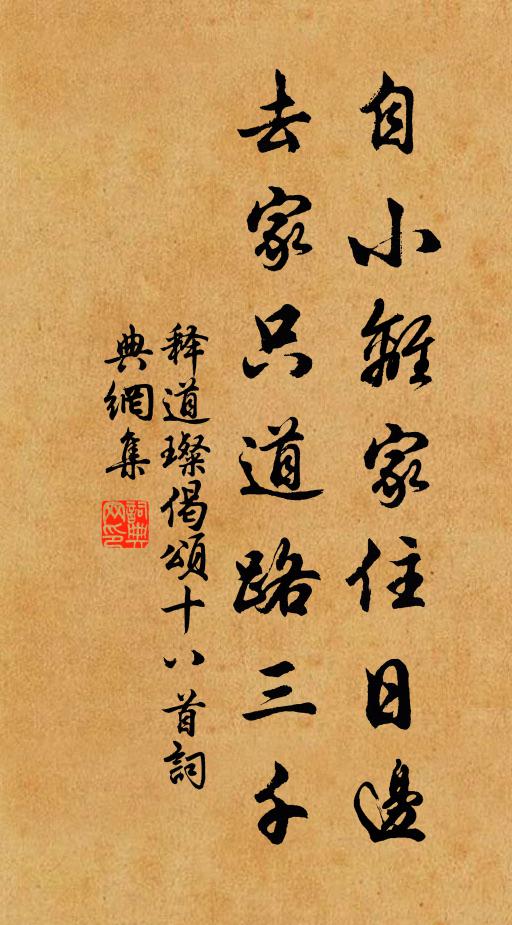 自小離家住日邊
去家只道路三千
释道璨偈頌十八首詞
典網集
詞典網印